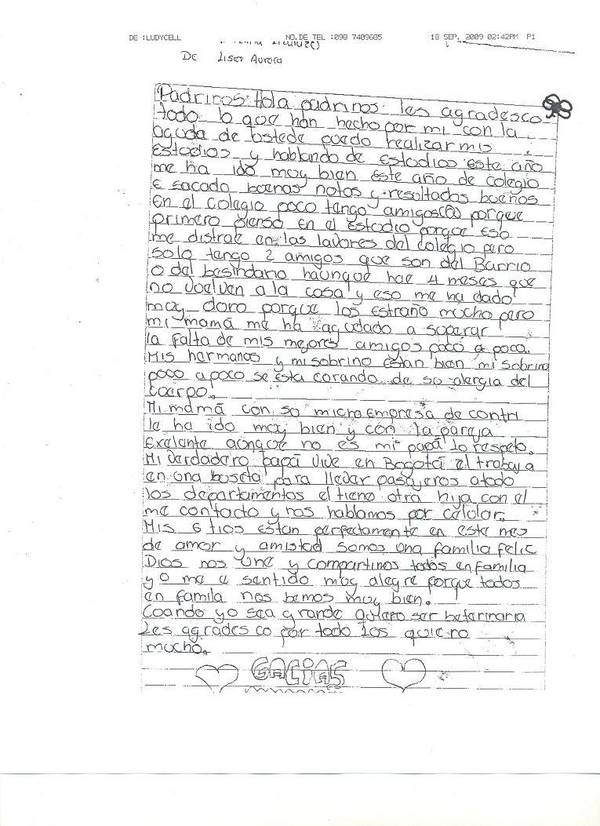 DE :LUDYCELL NO.DE TEL :098 7409685 18 SEP. 2009 02:42PM P1
De Liset Aurora
Padrinos: Hola padrinos les agradesco
todo lo que han hecho por mi con la
aguda de ustede puedo realizar mis
Estudios y hablando de Estudios este año
me ha ido muy bien este año de colegio
e sacado buenas notas y resultados buenos
En el colegio poco tengo amigos(a) porque
primero pienso en el estudio porque eso
me distrae en las labores del colegio pero
solo tengo 2 amigos que son del Barrio
o del besindario haunque hae 4 meses que
no vuelven a la casa y eso me ha dado
muy doro porque los estraño mucho pero
mi mamá me ha agudado a superar
la falta de mis mejores amigos poco a poco.
Mis hermanos y mi sobrino estan bien mi sobrino
poco a poco se esta corando de su alergia del
cuerpo.
Mi mamá con so microempresa de contri
le ha ido muy bien y con la pareja
Exelante aunque no es mi papá lo respeto.
Mi verdadero papá vive en Bogotá el trabaja
en una buseta para llevar pasajeros atodo
los departamentos el tiene otra hija con el
me contacto y nos hablamos por celular.
Mis 6 tios estan perfectamente en este mes
de amor y amistad somos una familia felic
Dios nos une y compartimos todos en familia
yo me e sentido muy alegre porque todos
en famila nos bemos muy bien.
Coando yo sea grande quiero ser betarinaria
Les agradesco por todo los quiero
mucho.
GRACIAS